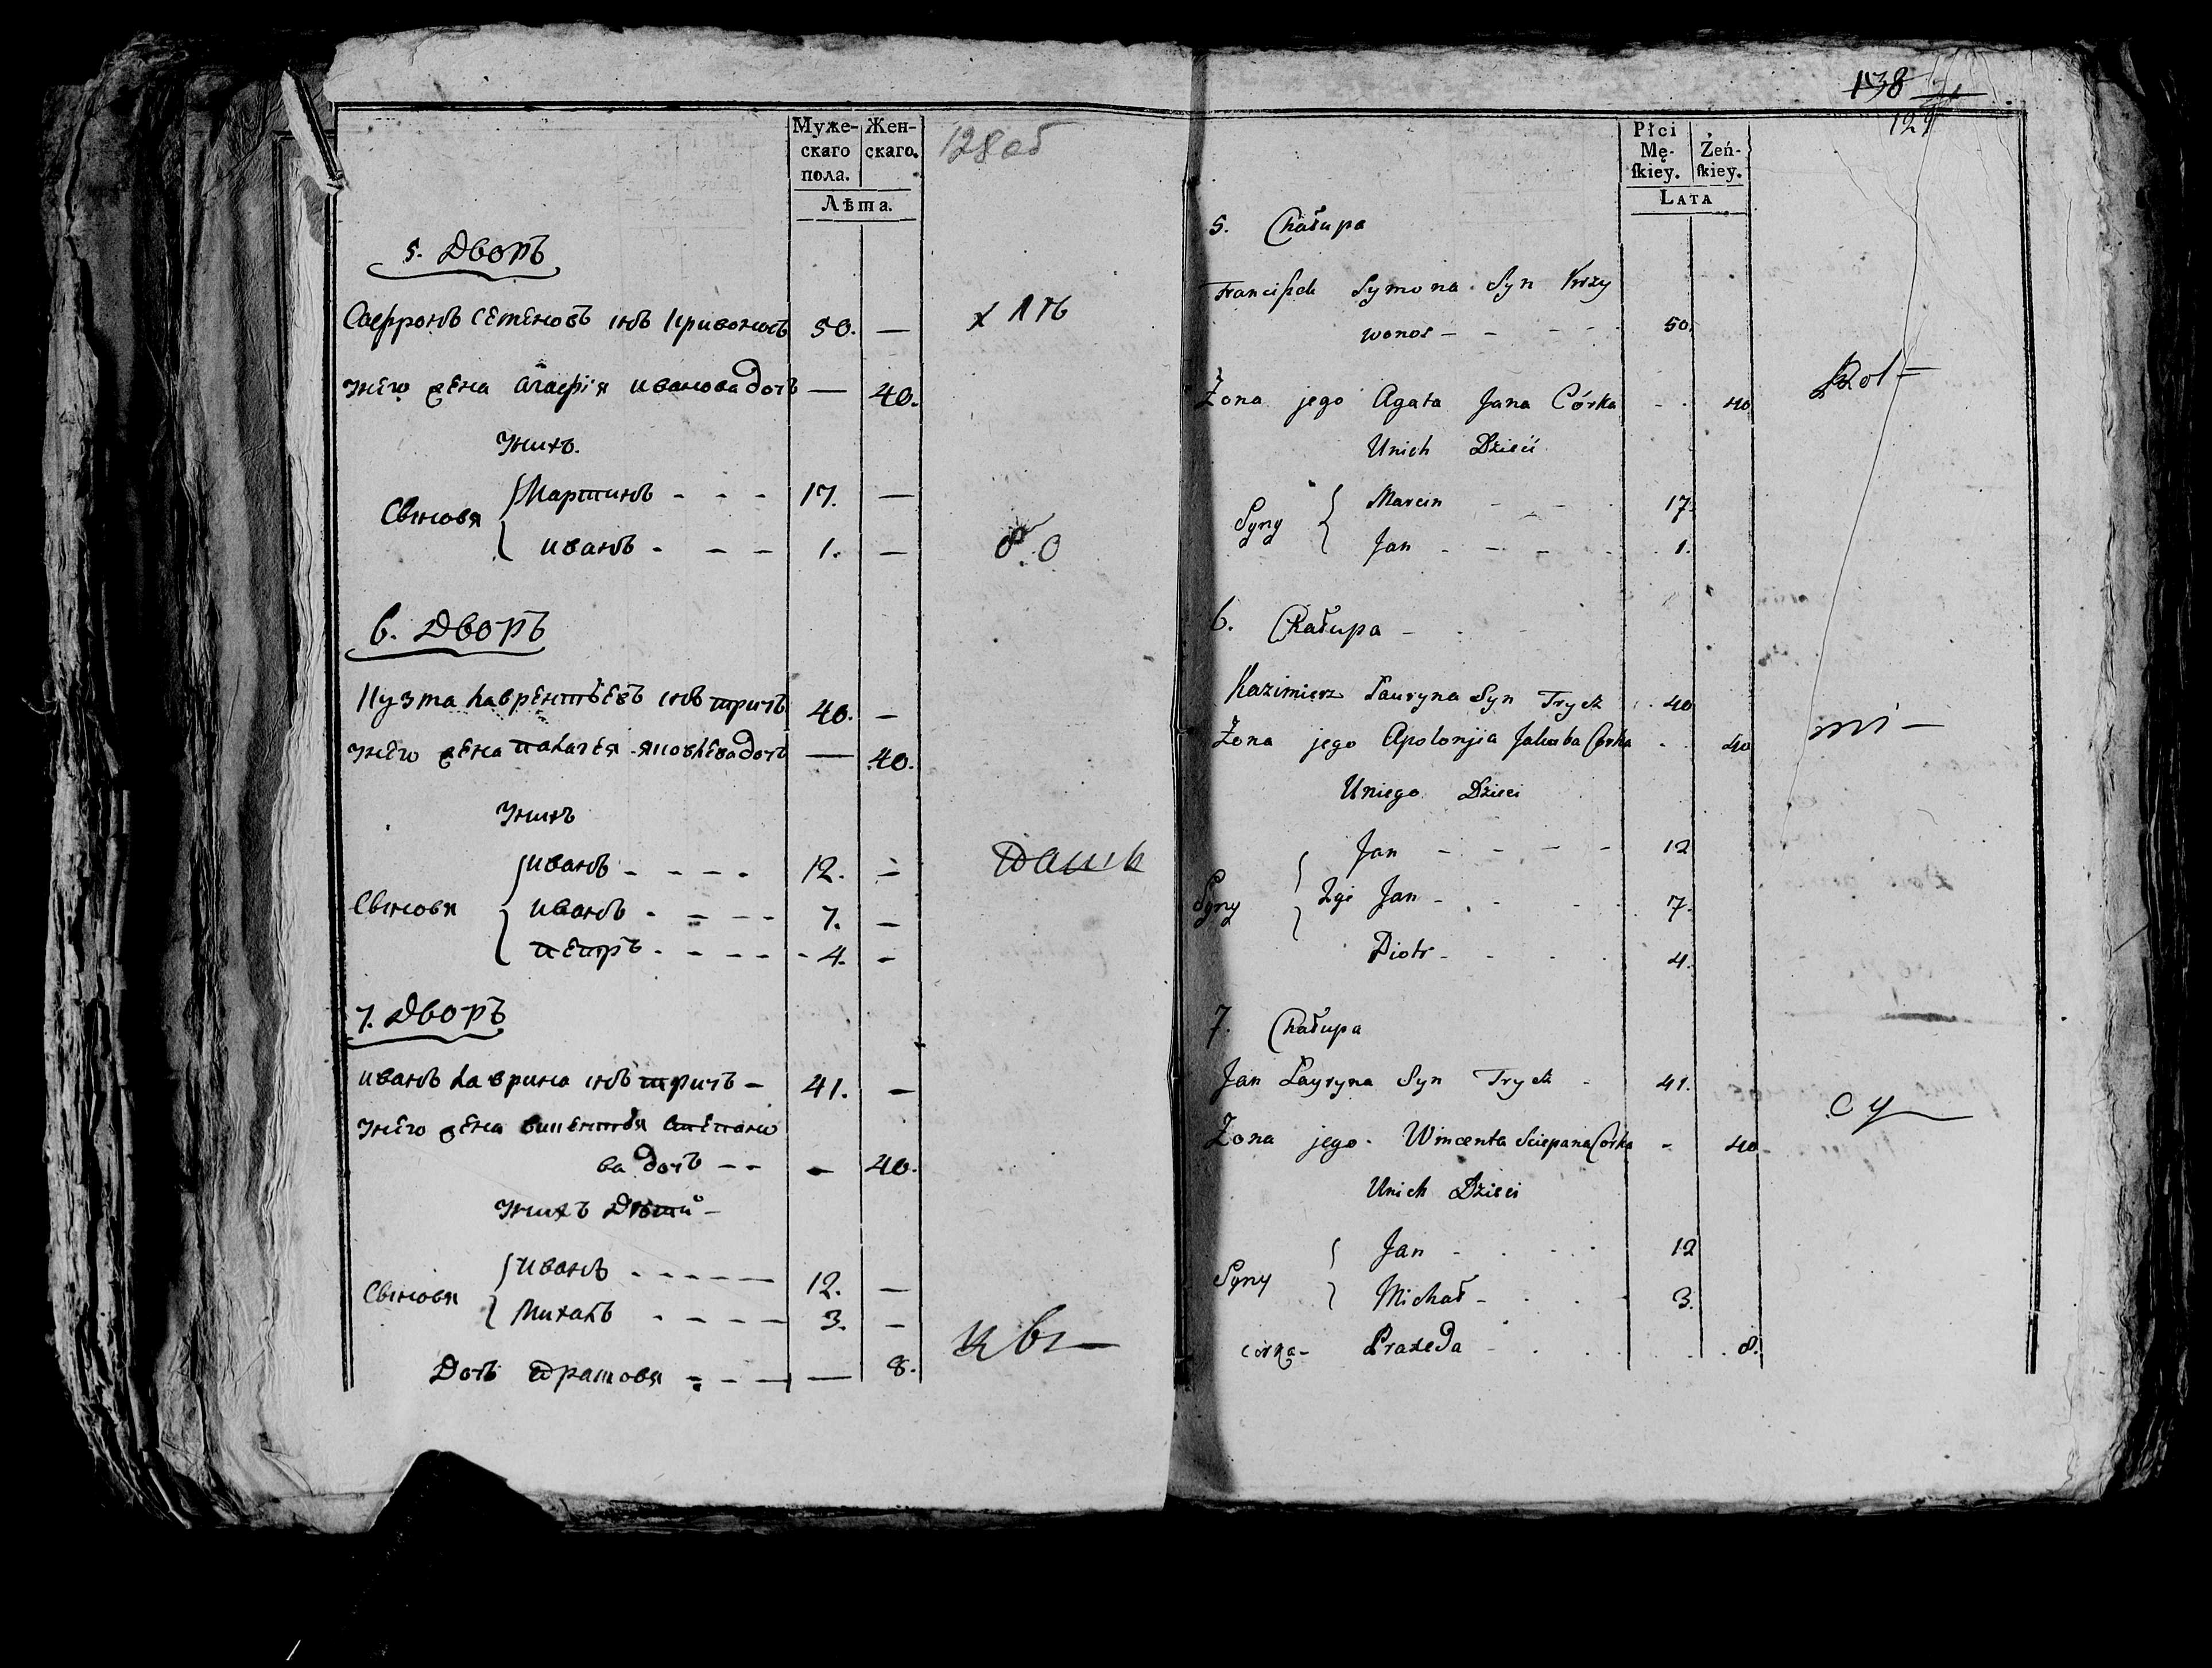 Муже-
скаго
пола.
Жен-
скаго.
Лѣта.
128 об
5. Дворъ
Сафронъ Семеновъ снъ Кривоносъ 50. —
Унего жена Агафія иванова дочь — 40.
Унихъ.
Сыновя
Мартинъ - - - 17. —
иванъ - - - 1. —
6. Дворъ
Кузма Лаврентьевъ снъ тричъ 40. —
Унего жена палагея яковлева дочь — 40.
Унихъ
Сыновя
иванъ - - - - 12. —
иванъ - - - - 7. —
петръ - - - - 4. —
7. Дворъ
иванъ Лаврина снъ тричъ — 41. —
Унего жена винентья степано
ва дочь - - — 40.
Унихъ Дѣти —
Сыновя
иванъ - - - - 12. —
Михалъ - - - - 3. —
Дочь - - - — 8.
138
129
Płci
Mę-
ſkiey.
Żeń-
ſkiey.
LATA
5. Chałupa
Franciſzek Symona Syn Krzy
wonos - - - - 50.
Żona jego Agata Jana Córka - - 40
Unich Dzieci
Syny
Marcin - - - 17.
Jan - - - - 1.
6. Chałupa -
Kazimierz Lauryna Syn Trycz 40
Żona jego Apolonjia Jakuba Corka - 40
Uniego Dzieci
Syny
Jan - - - - 12
2gi Jan - - - - 7.
Piotr - - - 4.
7. Chałupa
Jan Lauryna Syn Trycz - 41.
Żona jego Wincenta Sciepana Corka - 40
Unich Dzieci
Syny
Jan - - - 12
Michał - - - 3.
corka - Praxeda - - - 8.